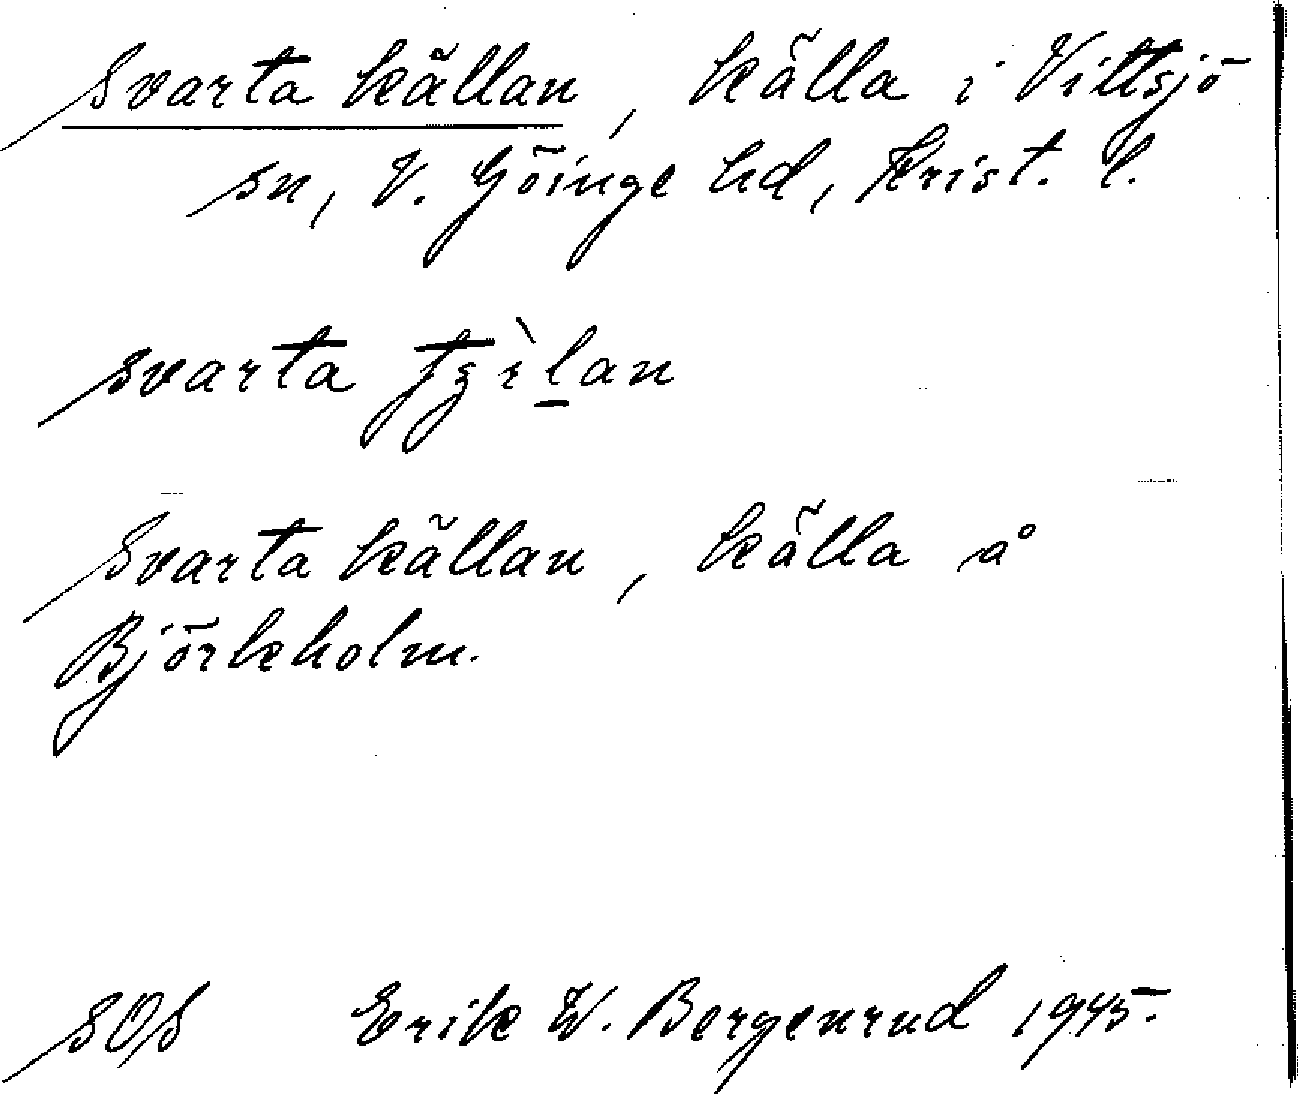 Svarta källan, källa i Vittsjö
sn, V. Göinge hd, Krist. l.
svarta
Svarta källan, källa å
Björkholm.
SOS Erik W. Bergenrud 1945.